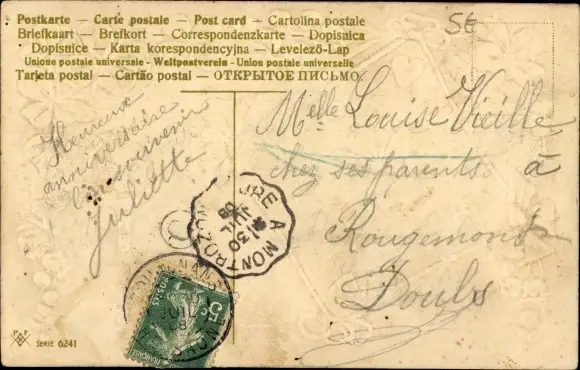 Postkarte — Carte postale — Post card — Cartolina postale
Briefkaart — Brefkort — Correspondenzkarte — Dopisnica
Dopisnice — Karta korespondencyjna — Levelező-Lap
Unione postale universale - Weltpostverein - Union postale universelle
Tarjeta postal — Cartão postal — ОТКРЫТОЕ ПИСЬМО
5€
Heureux
anniversaire
souvenir
Juliette
Melle Louise Vieille
chez ses parents à
Rougemont
Doubs
A MONTBOZON
30
JUIL
08
5c
POSTES
P F
SERIE 6241